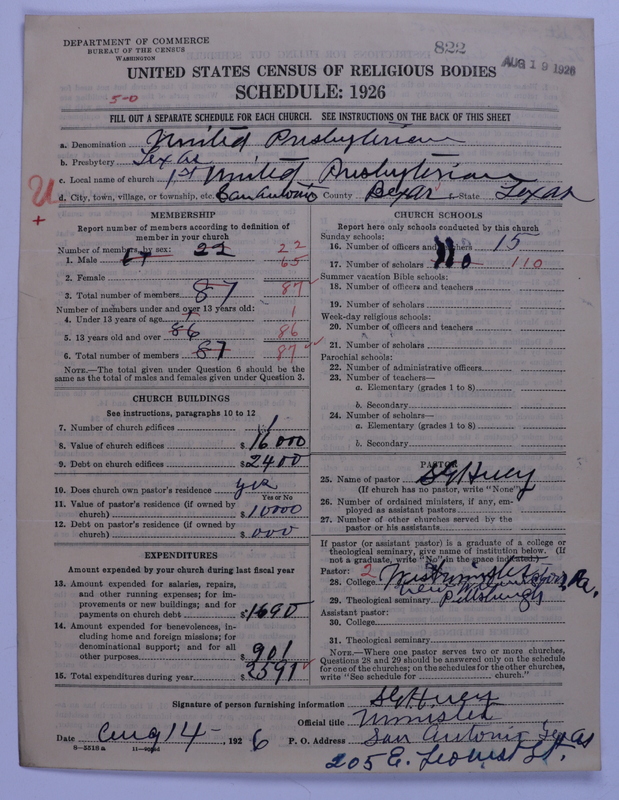 DEPARTMENT OF COMMERCE
BUREAU OF THE CENSUS
WASHINGTON
822
AUG 19 1926
UNITED STATES CENSUS OF RELIGIOUS BODIES
SCHEDULE: 1926
5-0
FILL OUT A SEPARATE SCHEDULE FOR EACH CHURCH. SEE INSTRUCTIONS ON THE BACK OF THIS SHEET
a. Denomination United Presbyterian
b. Presbytery Texas
c. Local name of church 1st United Presbyterian
U
+
d. City, town, village, or township, etc. San Antonio County Bexar State Texas
MEMBERSHIP
Report number of members according to definition of
member in your church
Number of members, by sex:
1. Male 22 22
65
2. Female
3. Total number of members 87 87
Number of members under and over 13 years old:
4. Under 13 years of age 1 1
5. 13 years old and over 86 86
6. Total number of members 87 87
NOTE.—The total given under Question 6 should be
the same as the total of males and females given under Question 3.
CHURCH BUILDINGS
See instructions, paragraphs 10 to 12
7. Number of church edifices 1
8. Value of church edifices $ 16000
9. Debt on church edifices $ 2400
10. Does church own pastor's residence yes
Yes or No
11. Value of pastor's residence (if owned by
church) $ 10000
12. Debt on pastor's residence (if owned by
church) $ 000
EXPENDITURES
Amount expended by your church during last fiscal year
13. Amount expended for salaries, repairs,
and other running expenses; for im-
provements or new buildings; and for
payments on church debt $ 1690
14. Amount expended for benevolences, in-
cluding home and foreign missions; for
denominational support; and for all
other purposes $ 901
15. Total expenditures during year $ 2591
CHURCH SCHOOLS
Report here only schools conducted by this church
Sunday schools:
16. Number of officers and teachers 15
17. Number of scholars 110 110
Summer vacation Bible schools:
18. Number of officers and teachers
19. Number of scholars
Week-day religious schools:
20. Number of officers and teachers
21. Number of scholars
Parochial schools:
22. Number of administrative officers
23. Number of teachers—
a. Elementary (grades 1 to 8)
b. Secondary
24. Number of scholars—
a. Elementary (grades 1 to 8)
b. Secondary
PASTOR
25. Name of pastor S G Huey
(If church has no pastor, write "None")
26. Number of ordained ministers, if any, em-
ployed as assistant pastors
27. Number of other churches served by the
pastor or his assistants
If pastor (or assistant pastor) is a graduate of a college or
theological seminary, give name of institution below. (If
not a graduate, write "No" in the space indicated.)
Pastor: 2
28. College Westminster
New Wilmington, Pa.
29. Theological seminary Pittsburgh
Assistant pastor:
30. College
31. Theological seminary
NOTE.—Where one pastor serves two or more churches,
Questions 28 and 29 should be answered only on the schedule
for one of the churches; on the schedules for the other churches,
write "See schedule for church."
Signature of person furnishing information S G Huey
Official title Minister
Date Aug 14, 1926 P. O. Address San Antonio Texas
8-5518a
205 E. Locust St.